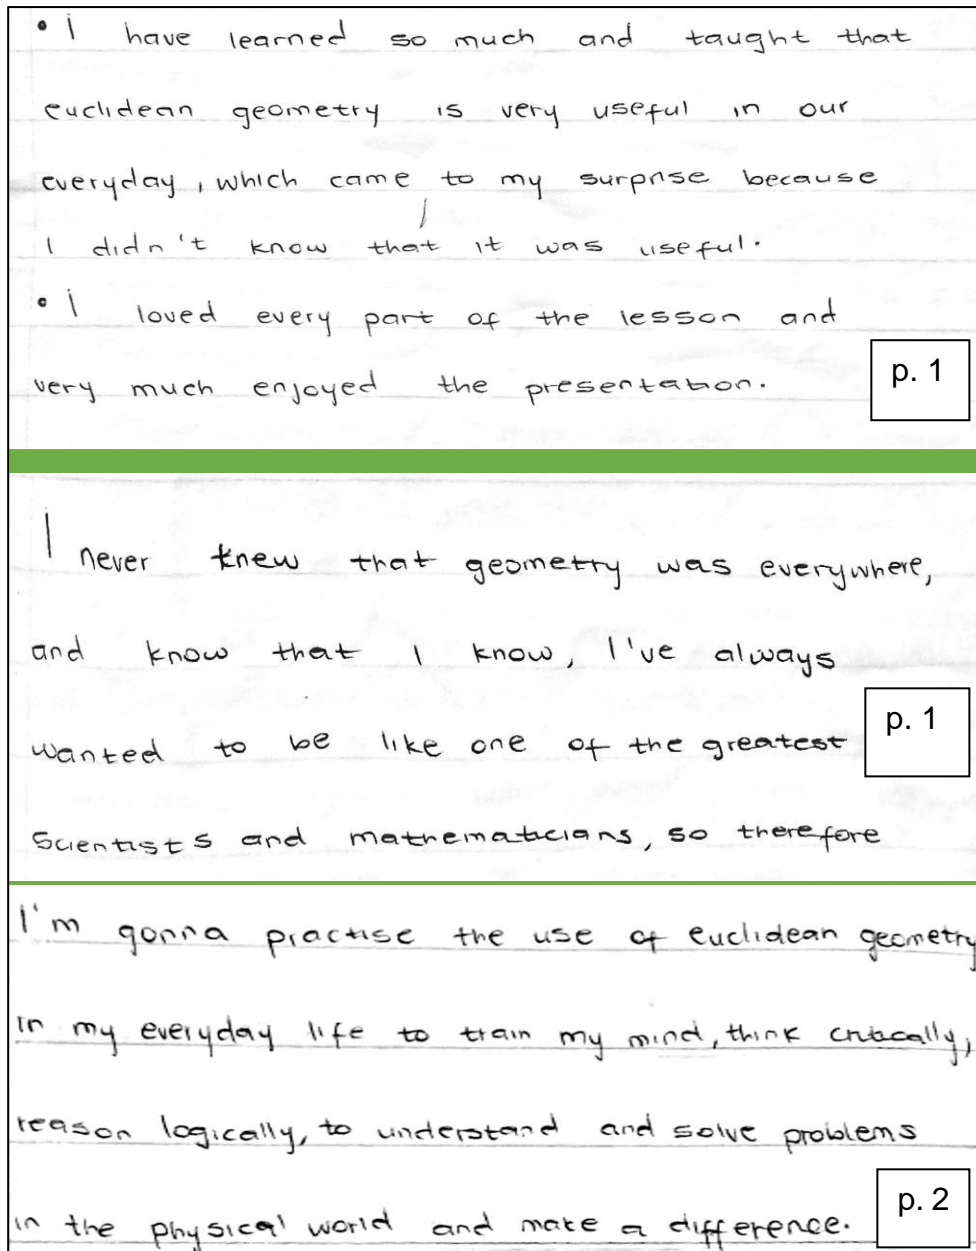 • I have learned so much and taught that
euclidean geometry is very useful in our
everyday, which came to my surprise because
I didn't know that it was useful.
• I loved every part of the lesson and
very much enjoyed the presentation.
p. 1
I never knew that geometry was everywhere,
and know that I know, I've always
wanted to be like one of the greatest
p. 1
Scientists and mathematicians, so therefore
I'm gonna practise the use of euclidean geometry
in my everyday life to train my mind, think critically,
reason logically, to understand and solve problems
in the physical world and make a difference.
p. 2